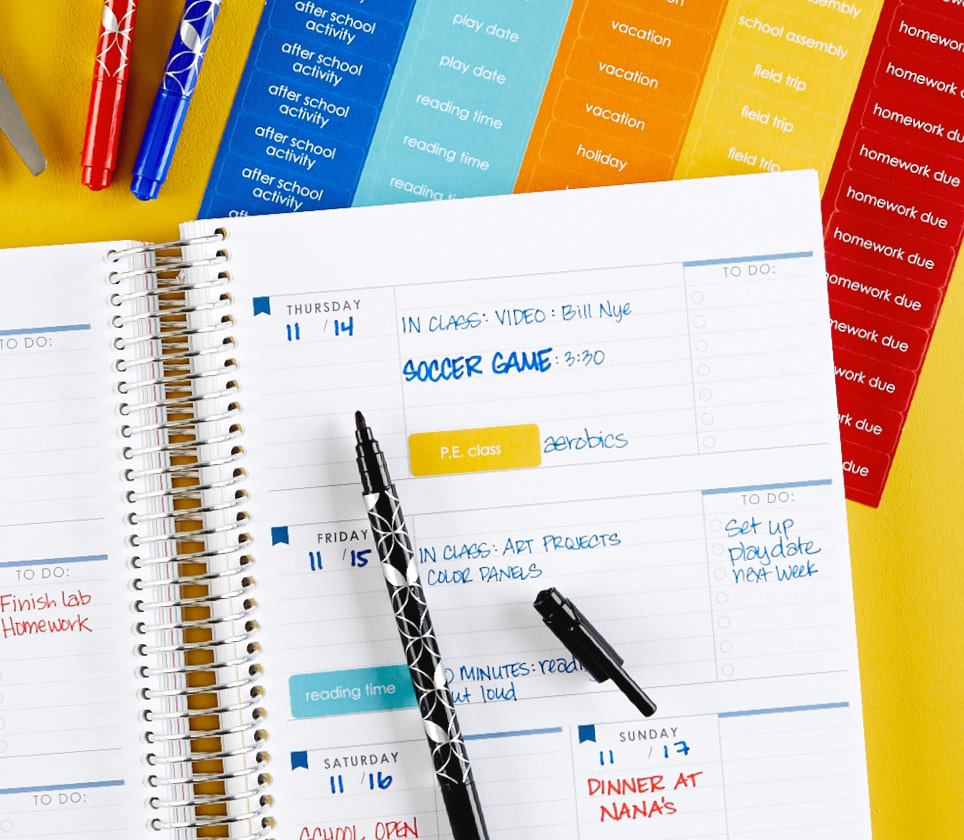 after school
activity
after school
activity
after school
activity
after school
activity
after school
activity
play date
play date
reading time
reading time
reading
vacation
vacation
vacation
holiday
assembly
school assembly
field trip
field trip
field trip
homework
homework
homework du
homework due
homework due
homework due
homework due
work due
work due
due
TO DO:
THURSDAY
11 / 14
IN CLASS: VIDEO: Bill Nye
SOCCER GAME: 3:30
P.E. class aerobics
TO DO:
FRIDAY
11 / 15
IN CLASS: ART PROJECTS
COLOR PANELS
reading time
MINUTES: readi
out loud
TO DO:
Set up
playdate
next week
SATURDAY
11 / 16
SCHOOL OPEN
SUNDAY
11 / 17
DINNER AT
NANA'S
TO DO:
TO DO:
Finish lab
Homework
TO DO: